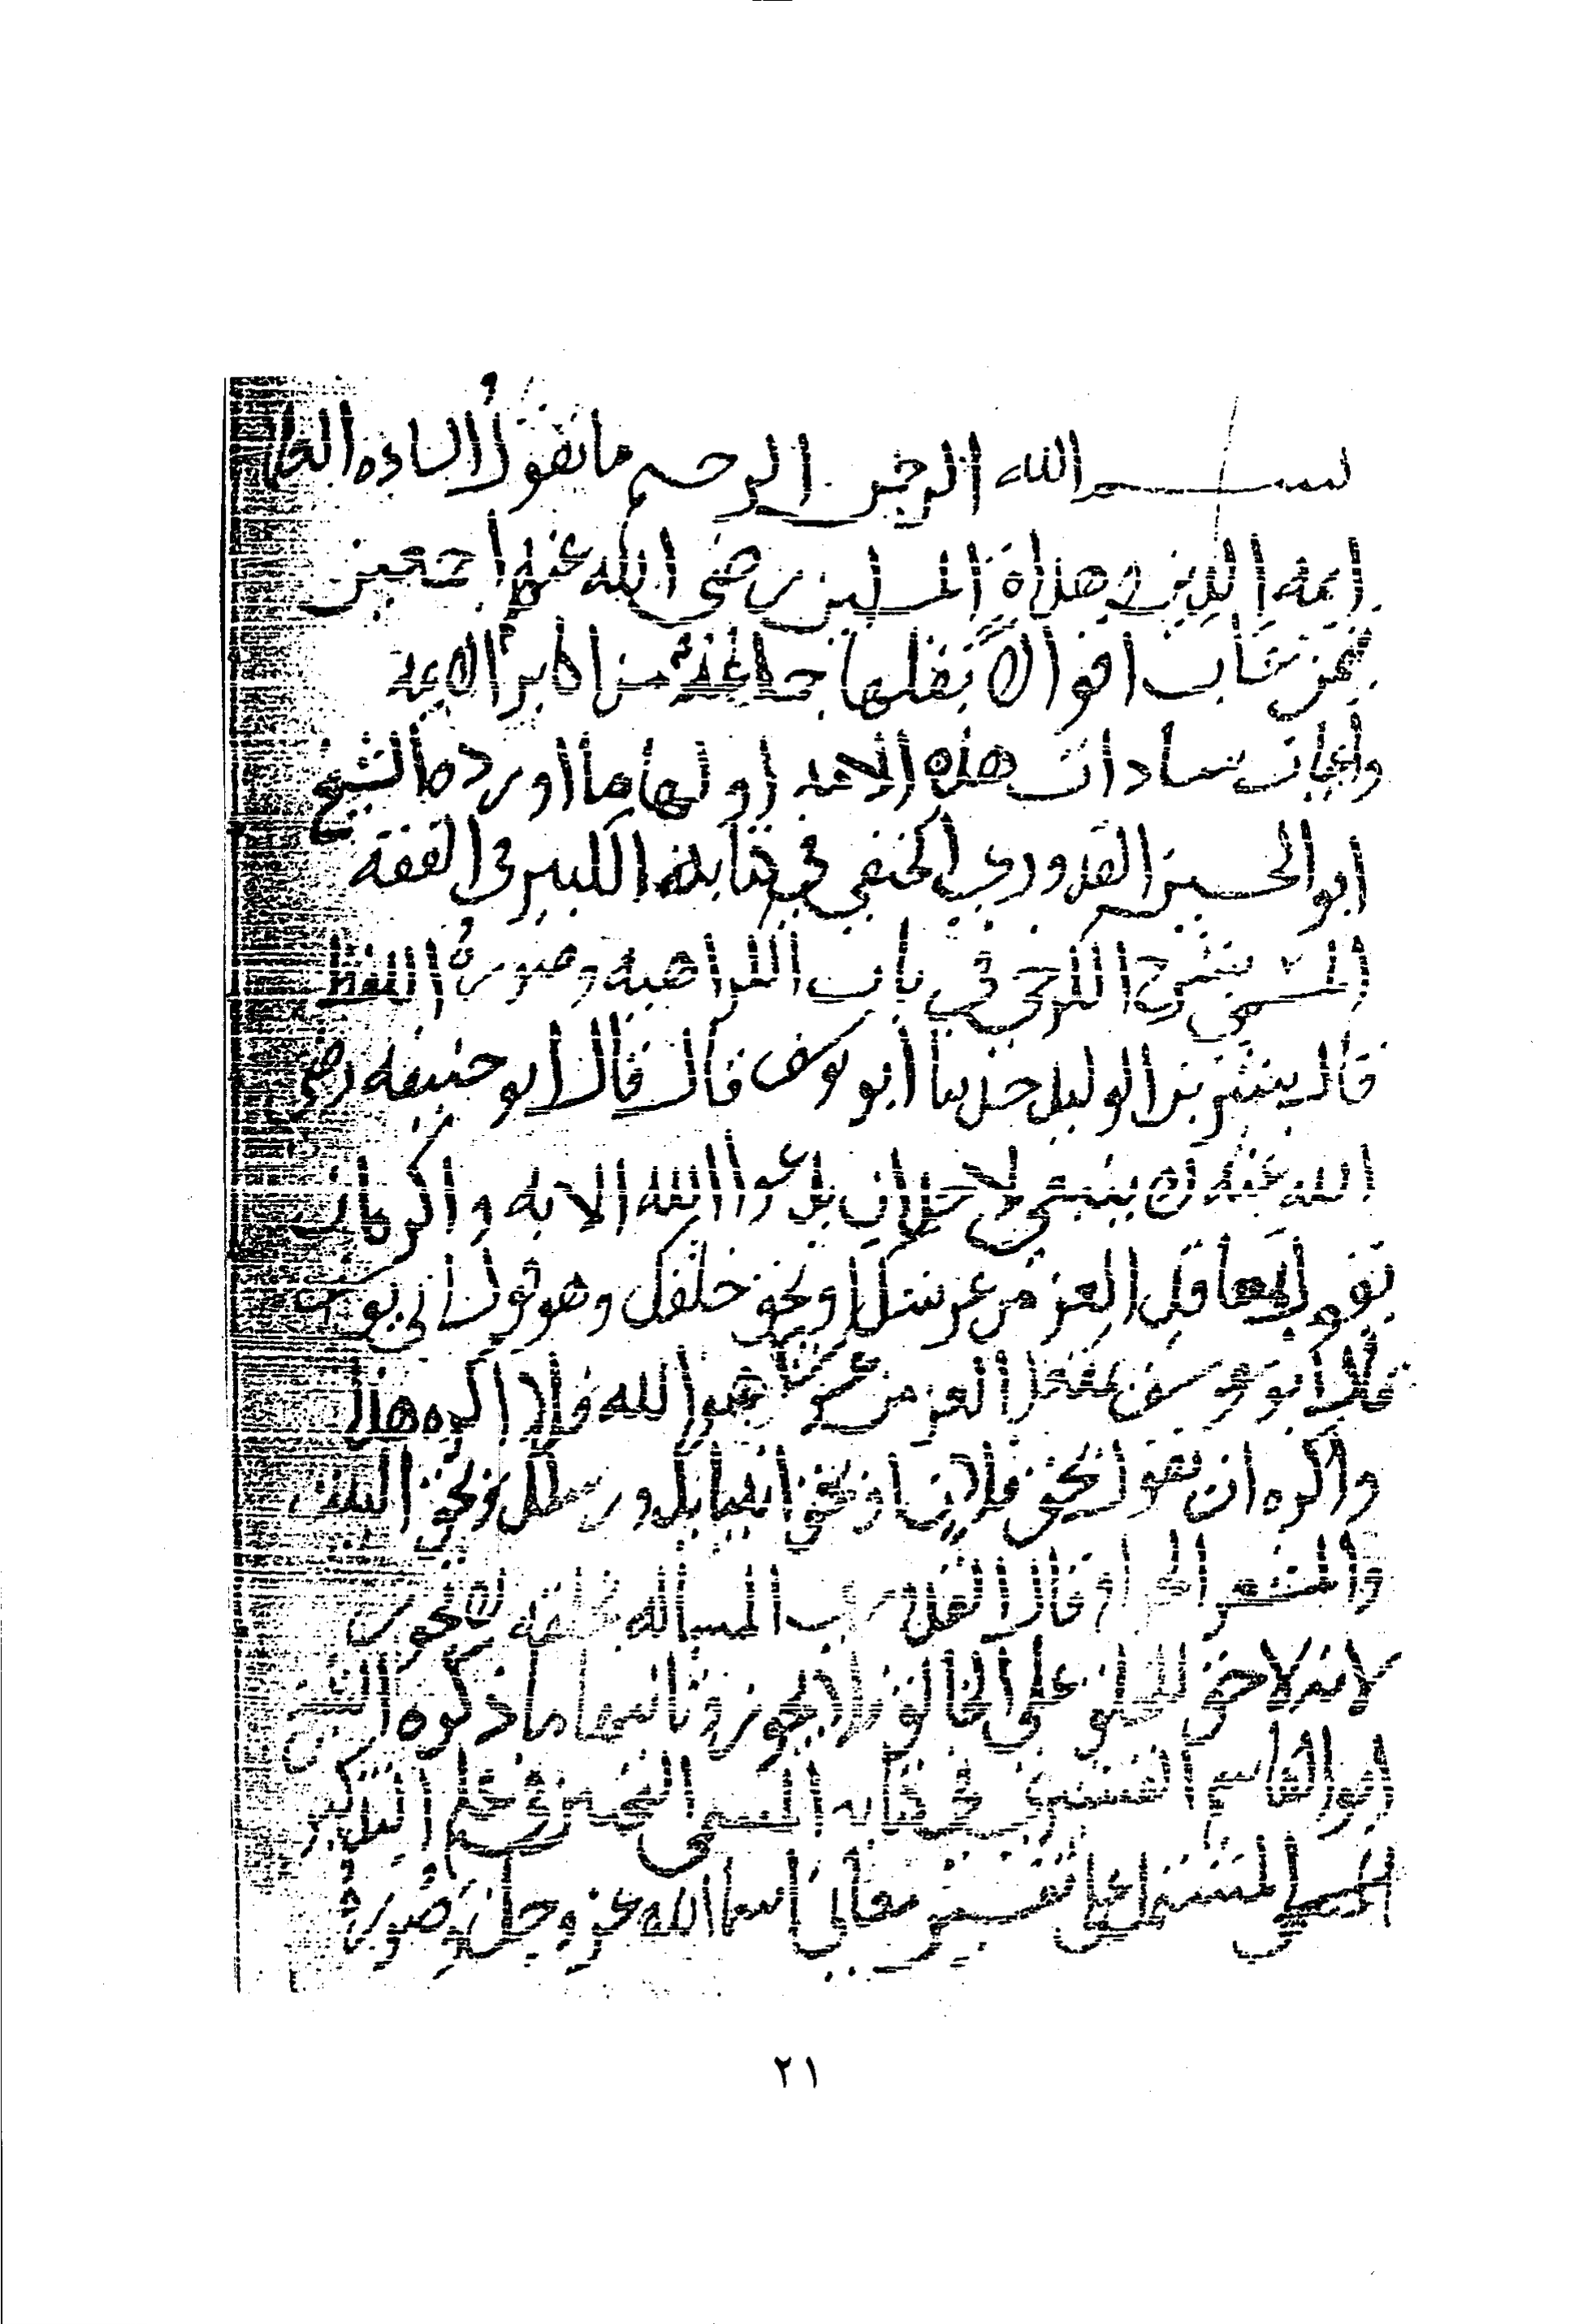 بسم الله الرحمن الرحيم ما تقول السادة العلما
ايمة الدين وهداة المسلمين رضي الله عنهم اجمعين
فيمن اقوالا نقلها جماعة من اكابر الايمة
سادات هذه الامة اولها ما اورده الشيخ
ابو الحسين القدوري الحنفي في كتابه الكبير في الفقة
المسمى بشرح الكرخي في باب الكراهية وصورة اللفظ
قال بشر بن الوليد حدثنا ابو يوسف قال قال ابو حنيفه رضي
الله عنه لا ينبغي لاحد ان يدعوا الله الا به واكره ان
يقول بمعاقد العز من عرشك او بحق خلقك وهو قول ابي يوسف
قال ابو يوسف بمعقد العز من عرشه هو الله فلا اكره هذا
واكره ان يقول بحق فلان او بحق انبيايك ورسلك وبحق البيت
والمشعر الحرام قال القدوري المسالة بخلقه لا تجوز
لانه لا حق للخلق على الخالق فلا يجوز وثانيها ما ذكره الشيخ
ابو القاسم القشيري في كتابه المسمى التحبير في علم التذكير
المشتمل على تفسير معاني اسما الله عز وجل وصورته
٢١